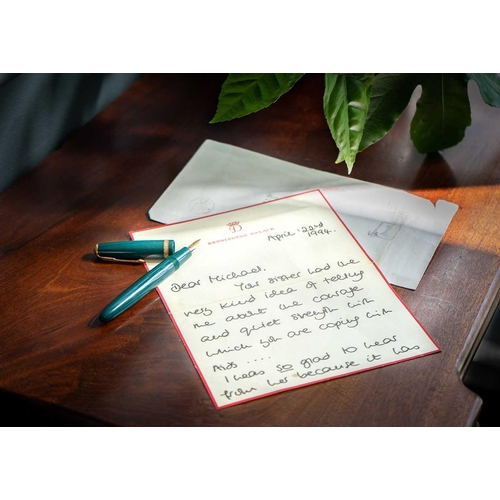 D
KENSINGTON PALACE
April 22nd
1994.
Dear Michael.
Your sister had the
very kind idea of telling
me about the courage
and quiet strength with
which you are coping with
Aids ....
I was so glad to hear
from her because it has